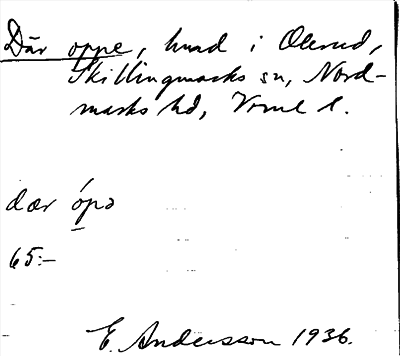 Där oppe, hmd i Olerud,
Skillingmarks sn, Nord-
marks hd, Vrml l.
dær ópə
65:-
E. Andersson 1936.